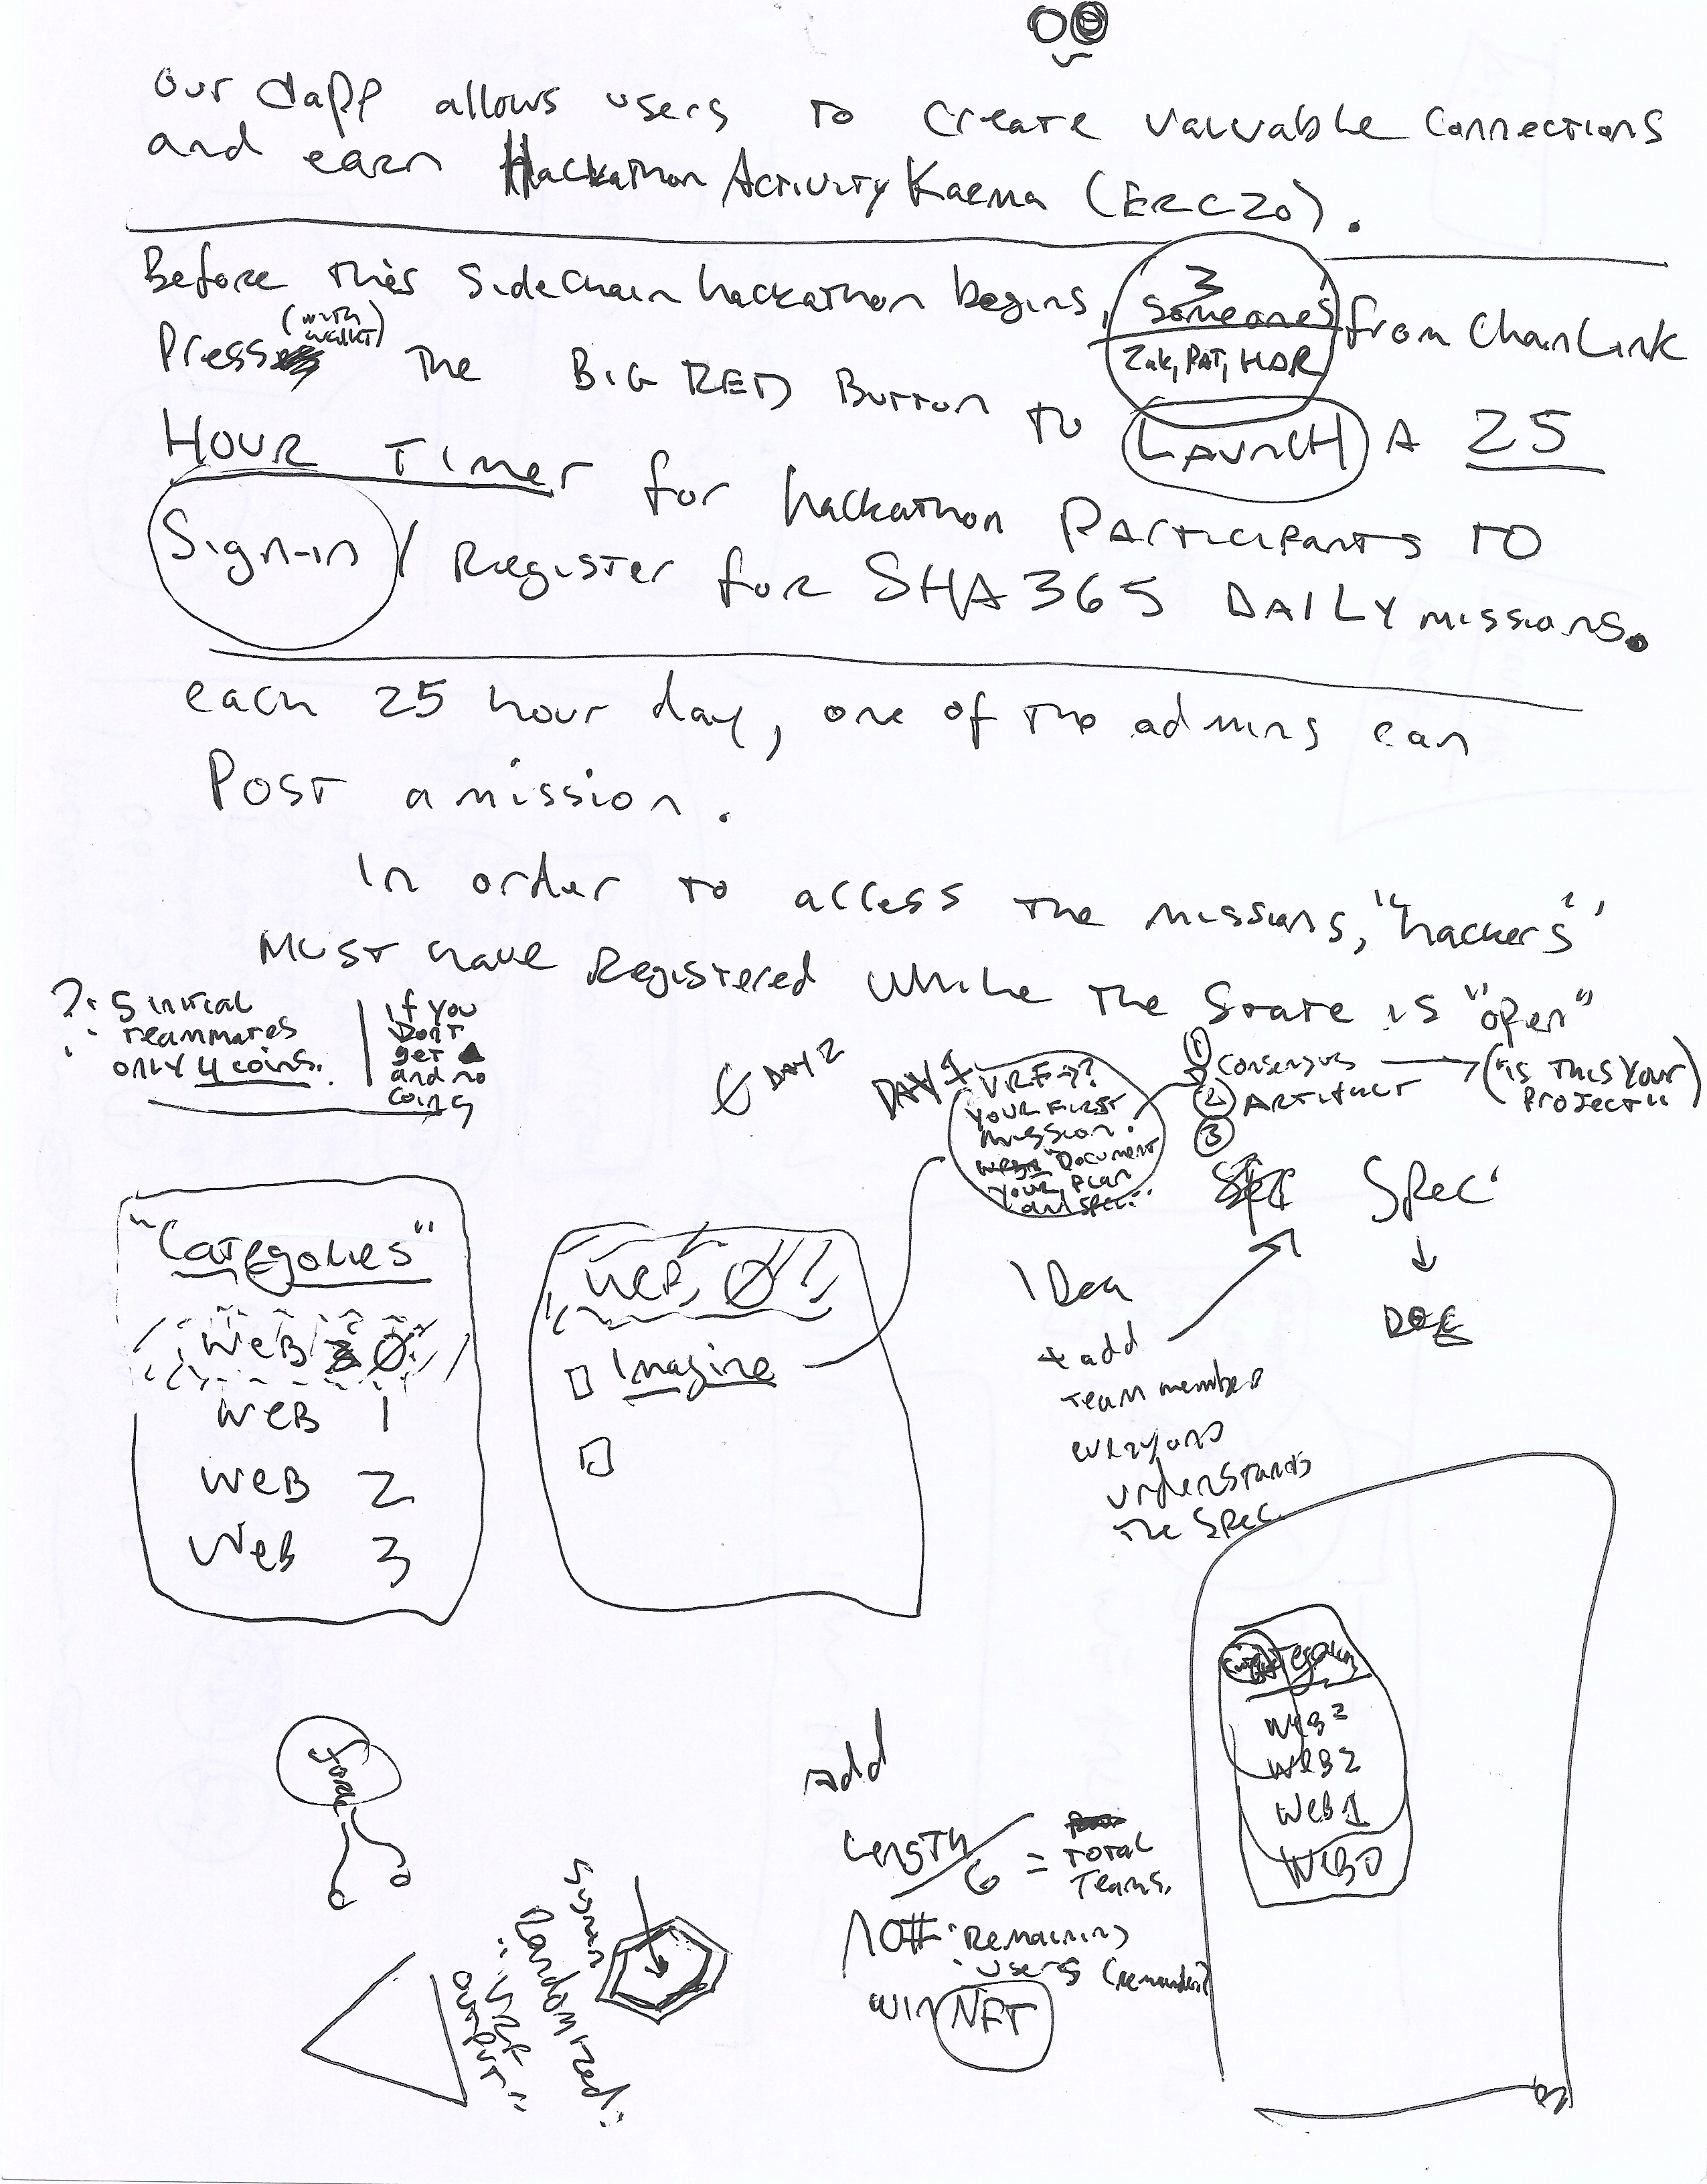 Our dapp allows users to create valuable connections
and earn Hackathon Activity Karma (ERC20).
Before this Sidechain hackathon begins, 3 someones from ChainLink
Zak, PAT, HAR
Press (with wallet) The BIG RED Button to LAUNCH A 25
HOUR Timer for hackathon Participants TO
Sign-in / Register for SHA365 DAILY missions.
each 25 hour day, one of the admins can
Post a mission.
In order to access the missions, "hackers"
Must have Registered while the State is "open"
?: 5 initial
teammates
only 4 coins.
if you
Don't
get
and no
coins
DAY 2
DAY 1
VRF→?
YOUR FIRST
mission:
"Document
your plan
and spec."
① Consensus → ("is THIS Your
Project"
② ARTIFACT
③
Spec
↓
DOC
IDea
+ add
Team member
everyone
understands
the Spec.
"Categories"
WEB 0
WEB 1
WEB 2
Web 3
WEB 0!!
Imagine
Category
WEB 3
WEB 2
WEB 1
WEB 0
fork
add
Length / 6 = Total
Teams.
Remaining
users (remainder)
WIN NFT
Randomized:
"VRF
output"